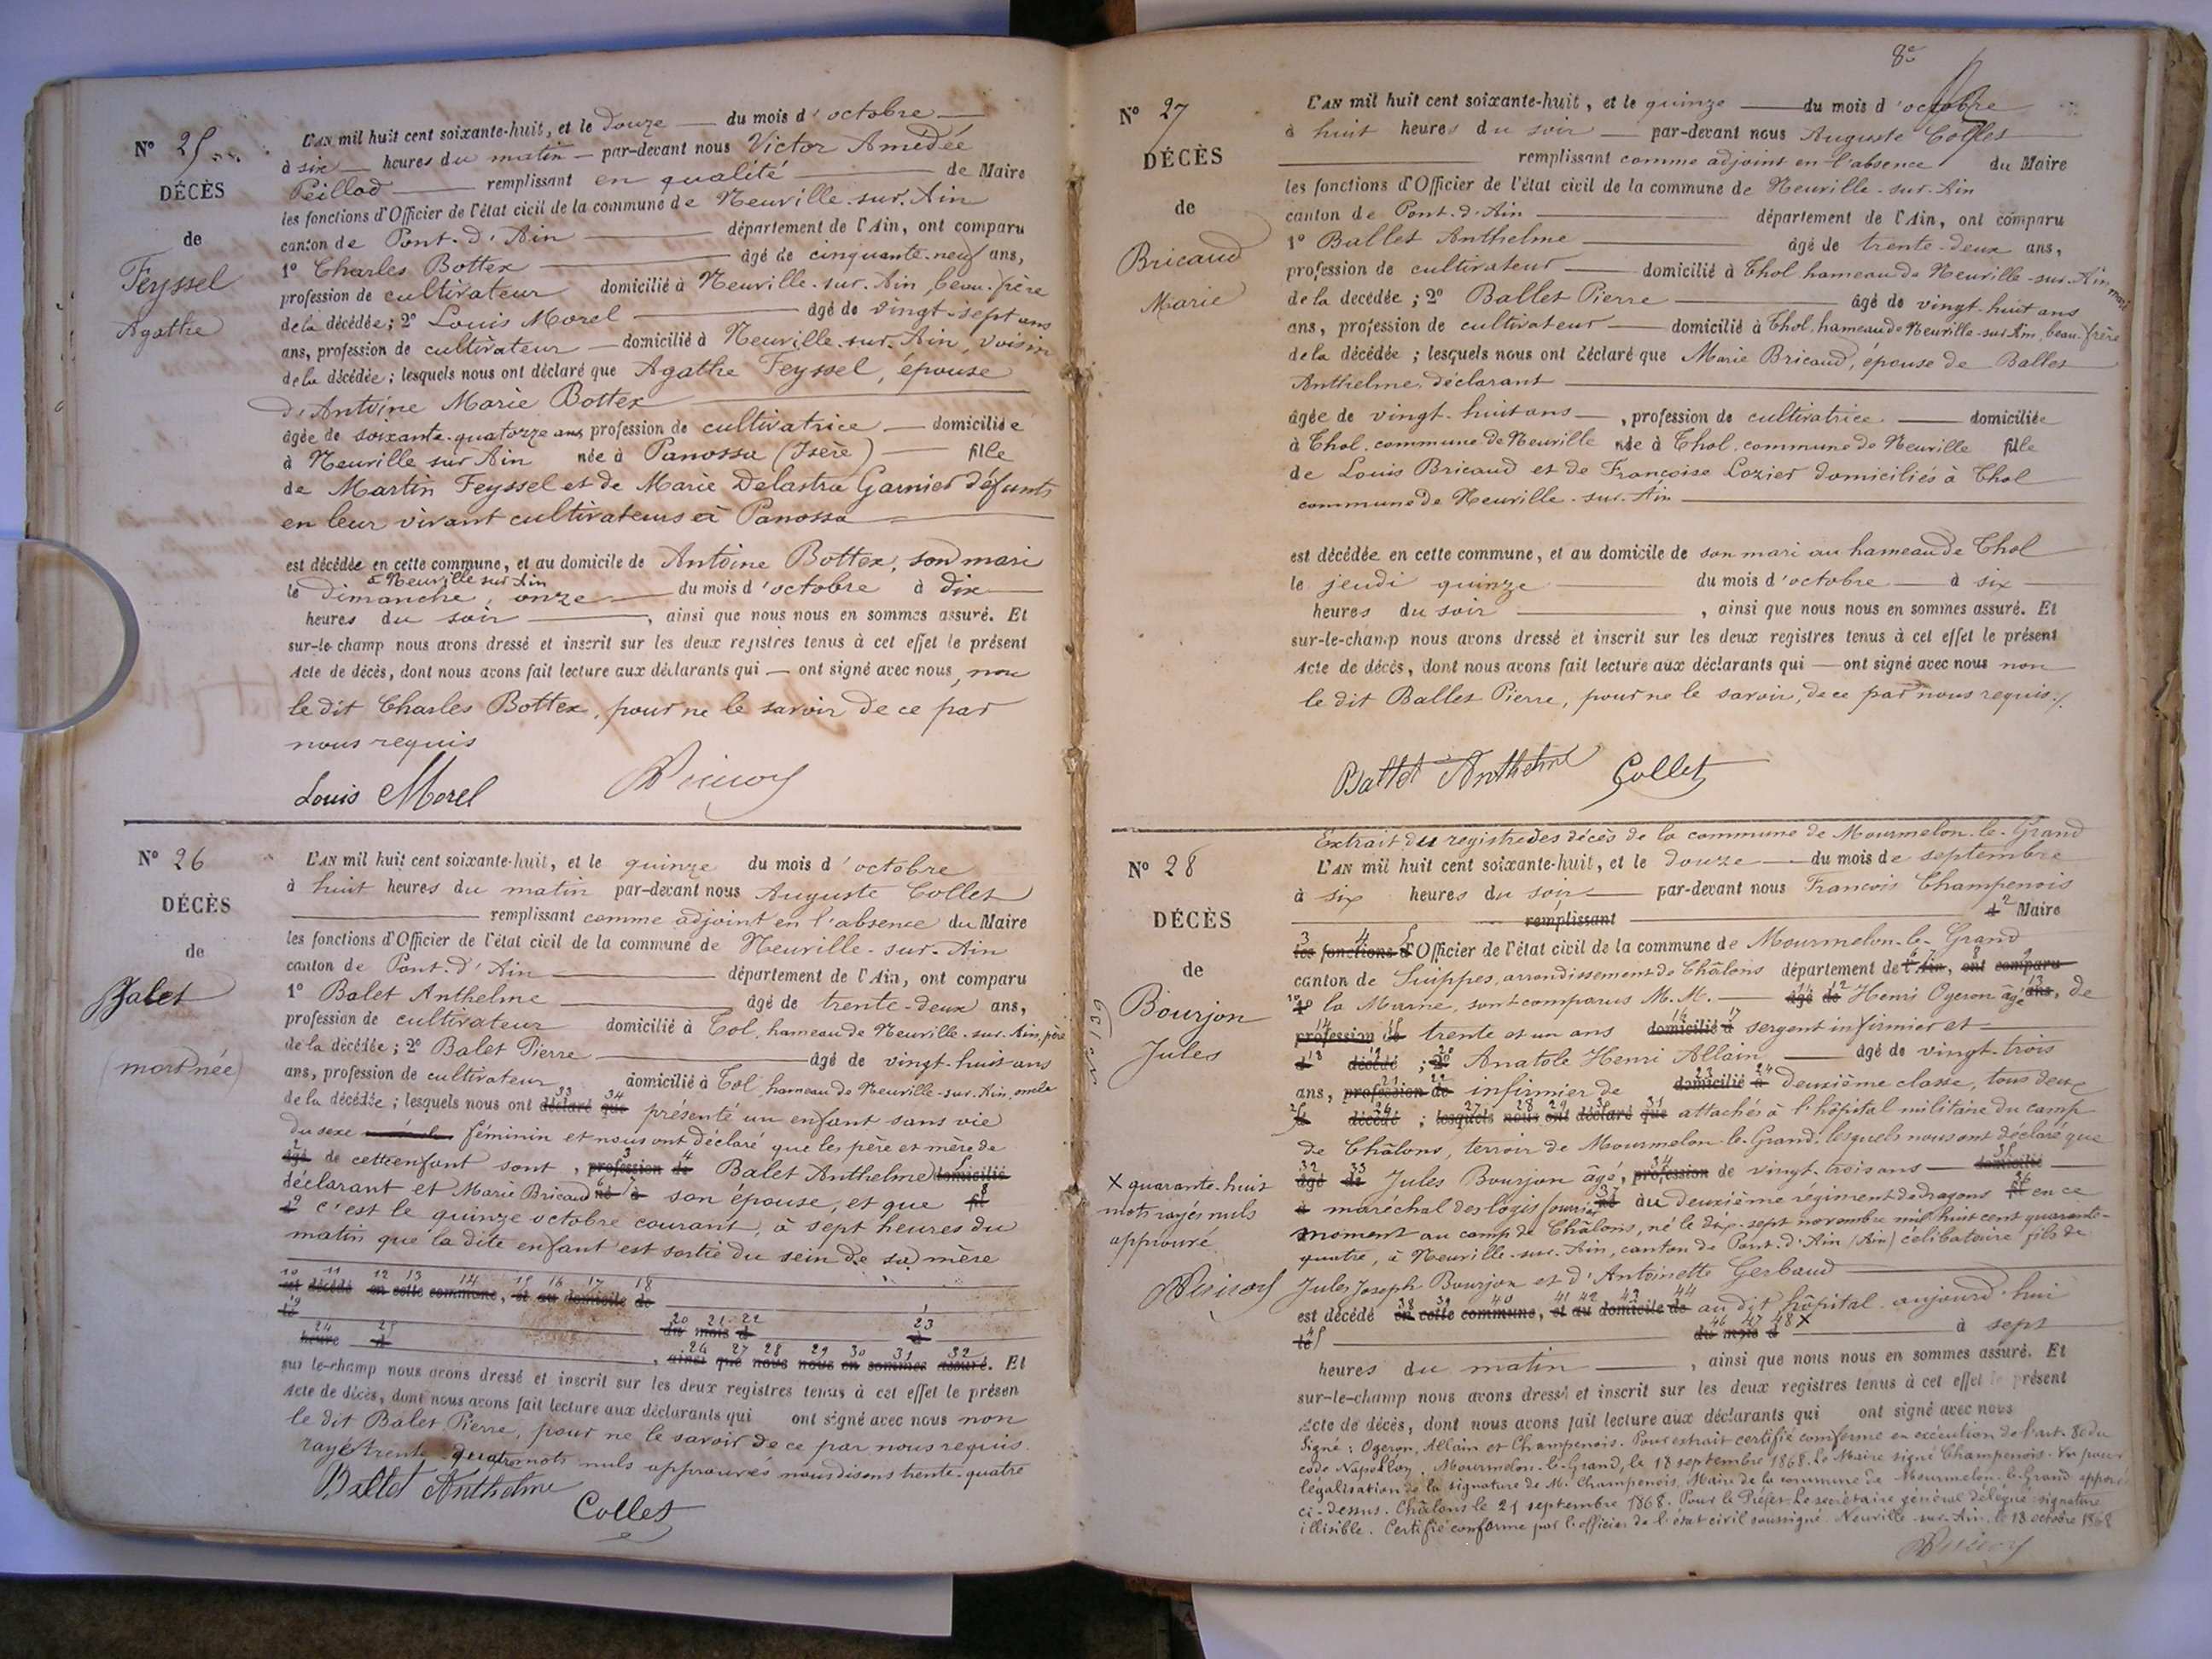 N° 25
DÉCÈS
de
Feyssel
Agathe
L'AN mil huit cent soixante-huit, et le douze du mois d'octobre
à six heures du matin par-devant nous Victor Amédée
Peillod remplissant en qualité de Maire
les fonctions d'Officier de l'état civil de la commune de Neuville-sur-Ain
canton de Pont-d'Ain département de l'Ain, ont comparu
1° Charles Bottex âgé de cinquante-neuf ans,
profession de cultivateur domicilié à Neuville-sur-Ain, beau-frère
de la décédée; 2° Louis Morel âgé de vingt-sept ans
ans, profession de cultivateur domicilié à Neuville-sur-Ain, voisin
de la décédée; lesquels nous ont déclaré que Agathe Feyssel, épouse
d'Antoine Marie Bottex
âgée de soixante-quatorze ans profession de cultivatrice domiciliée
à Neuville sur Ain née à Panossa (Isère) fille
de Martin Feyssel et de Marie Delastra Garnier défunts
en leur vivant cultivateurs à Panossa
est décédée en cette commune, et au domicile de Antoine Bottex, son mari
à Neuville sur Ain
le dimanche, onze du mois d'octobre à dix
heures du soir, ainsi que nous nous en sommes assuré. Et
sur-le-champ nous avons dressé et inscrit sur les deux registres tenus à cet effet le présent
Acte de décès, dont nous avons fait lecture aux déclarants qui ont signé avec nous, non
le dit Charles Bottex, pour ne le savoir de ce par
nous requis
Louis Morel
N° 26
DÉCÈS
de
Balet
(mort née)
L'AN mil huit cent soixante-huit, et le quinze du mois d'octobre
à huit heures du matin par-devant nous Auguste Collet
remplissant comme adjoint en l'absence du Maire
les fonctions d'Officier de l'état civil de la commune de Neuville-sur-Ain
canton de Pont-d'Ain département de l'Ain, ont comparu
1° Balet Anthelme âgé de trente-deux ans,
profession de cultivateur domicilié à Tol, hameau de Neuville-sur-Ain, père
de la décédée; 2° Balet Pierre âgé de vingt-huit ans
ans, profession de cultivateur domicilié à Tol, hameau de Neuville-sur-Ain, oncle
33 34
de la décédée; lesquels nous ont déclaré que présenté un enfant sans vie
du sexe féminin et nous ont déclaré que les père et mère de
âgé de cette enfant sont, profession de Balet Anthelme domicilié
déclarant et Marie Bricaud né à son épouse, et que fil
d c'est le quinze octobre courant, à sept heures du
matin que la dite enfant est sortie du sein de sa mère
10 11 12 13 14 15 16 17 18
est décédé en cette commune, et au domicile de
le 20 21 22 23
24 25 du mois d à
heure d 26 27 28 29 30 31 32
, ainsi que nous nous en sommes assuré. Et
sur le-champ nous avons dressé et inscrit sur les deux registres tenus à cet effet le présen
Acte de décès, dont nous avons fait lecture aux déclarants qui ont signé avec nous non
le dit Balet Pierre, pour ne le savoir de ce par nous requis.
rayé trente quatre mots nuls approuvés nous disons trente-quatre
Ballet Anthelme
Collet
8e
N° 27
DÉCÈS
de
Bricaud
Marie
L'AN mil huit cent soixante-huit, et le quinze du mois d'octobre
à huit heures du soir par-devant nous Auguste Collet
remplissant comme adjoint en l'absence du Maire
les fonctions d'Officier de l'état civil de la commune de Neuville-sur-Ain
canton de Pont-d'Ain département de l'Ain, ont comparu
1° Ballet Anthelme âgé de trente-deux ans,
profession de cultivateur domicilié à Thol hameau de Neuville-sur-Ain mari
de la décédée; 2° Ballet Pierre âgé de vingt-huit ans
ans, profession de cultivateur domicilié à Thol, hameau de Neuville-sur-Ain, beau-frère
de la décédée; lesquels nous ont déclaré que Marie Bricaud, épouse de Ballet
Anthelme, déclarant
âgée de vingt-huit ans, profession de cultivatrice domiciliée
à Thol, commune de Neuville née à Thol, commune de Neuville fille
de Louis Bricaud et de Françoise Lozier domiciliés à Thol
commune de Neuville-sur-Ain
est décédée en cette commune, et au domicile de son mari au hameau de Thol
le jeudi quinze du mois d'octobre à six
heures du soir, ainsi que nous nous en sommes assuré. Et
sur-le-champ nous avons dressé et inscrit sur les deux registres tenus à cet effet le présent
Acte de décès, dont nous avons fait lecture aux déclarants qui ont signé avec nous non
le dit Ballet Pierre, pour ne le savoir, de ce par nous requis./.
Ballet Anthelme Collet
N° 28
DÉCÈS
de
Bourjon
Jules
X quarante-huit
mots rayés nuls
approuvé
Extrait du registre des décès de la commune de Mourmelon-le-Grand
L'AN mil huit cent soixante-huit, et le douze du mois de septembre
à six heures du soir par-devant nous François Champenois
remplissant d Maire
les fonctions d'Officier de l'état civil de la commune de Mourmelon-le-Grand
canton de Suippes, arrondissement de Châlons département de l'Ain, ont comparu
1° la Marne, sont comparus M.M. âgé de Henri Ogeron âgé ans, de
profession de trente et un ans domicilié à sergent infirmier et
d décédé; 2° Anatole Henri Allain âgé de vingt-trois
ans, profession de infirmier de domicilié à deuxième classe, tous deux
d décédé; lesquels nous ont déclaré que attachés à l'hôpital militaire du camp
de Châlons, terroir de Mourmelon-le-Grand, lesquels nous ont déclaré que
âgé de Jules Bourjon âgé, profession de vingt-trois ans domicilié
à maréchal des logis fourrier né au deuxième régiment de dragons fil en ce
moment au camp de Châlons, né le dix-sept novembre mil huit cent quarante-
quatre, à Neuville-sur-Ain, canton de Pont-d'Ain (Ain) célibataire fils de
Jules Joseph Bourjon et d'Antoinette Gerbaud
est décédé en cette commune, et au domicile de au dit hôpital aujourd'hui
le du mois d X à sept
heures du matin, ainsi que nous nous en sommes assuré. Et
sur-le-champ nous avons dressé et inscrit sur les deux registres tenus à cet effet le présent
Acte de décès, dont nous avons fait lecture aux déclarants qui ont signé avec nous
Signé: Ogeron, Allain et Champenois. Pour extrait certifié conforme en exécution de l'art. 80 du
code Napoléon. Mourmelon-le-Grand, le 18 septembre 1868. Le Maire signé Champenois. Vu pour
légalisation de la signature de M. Champenois, Maire de la commune de Mourmelon-le-Grand apposée
ci-dessus. Châlons le 21 septembre 1868. Pour le Préfet. Le secrétaire général délégué signature
illisible. Certifié conforme par l'officier de l'état civil soussigné. Neuville-sur-Ain, le 18 octobre 1868